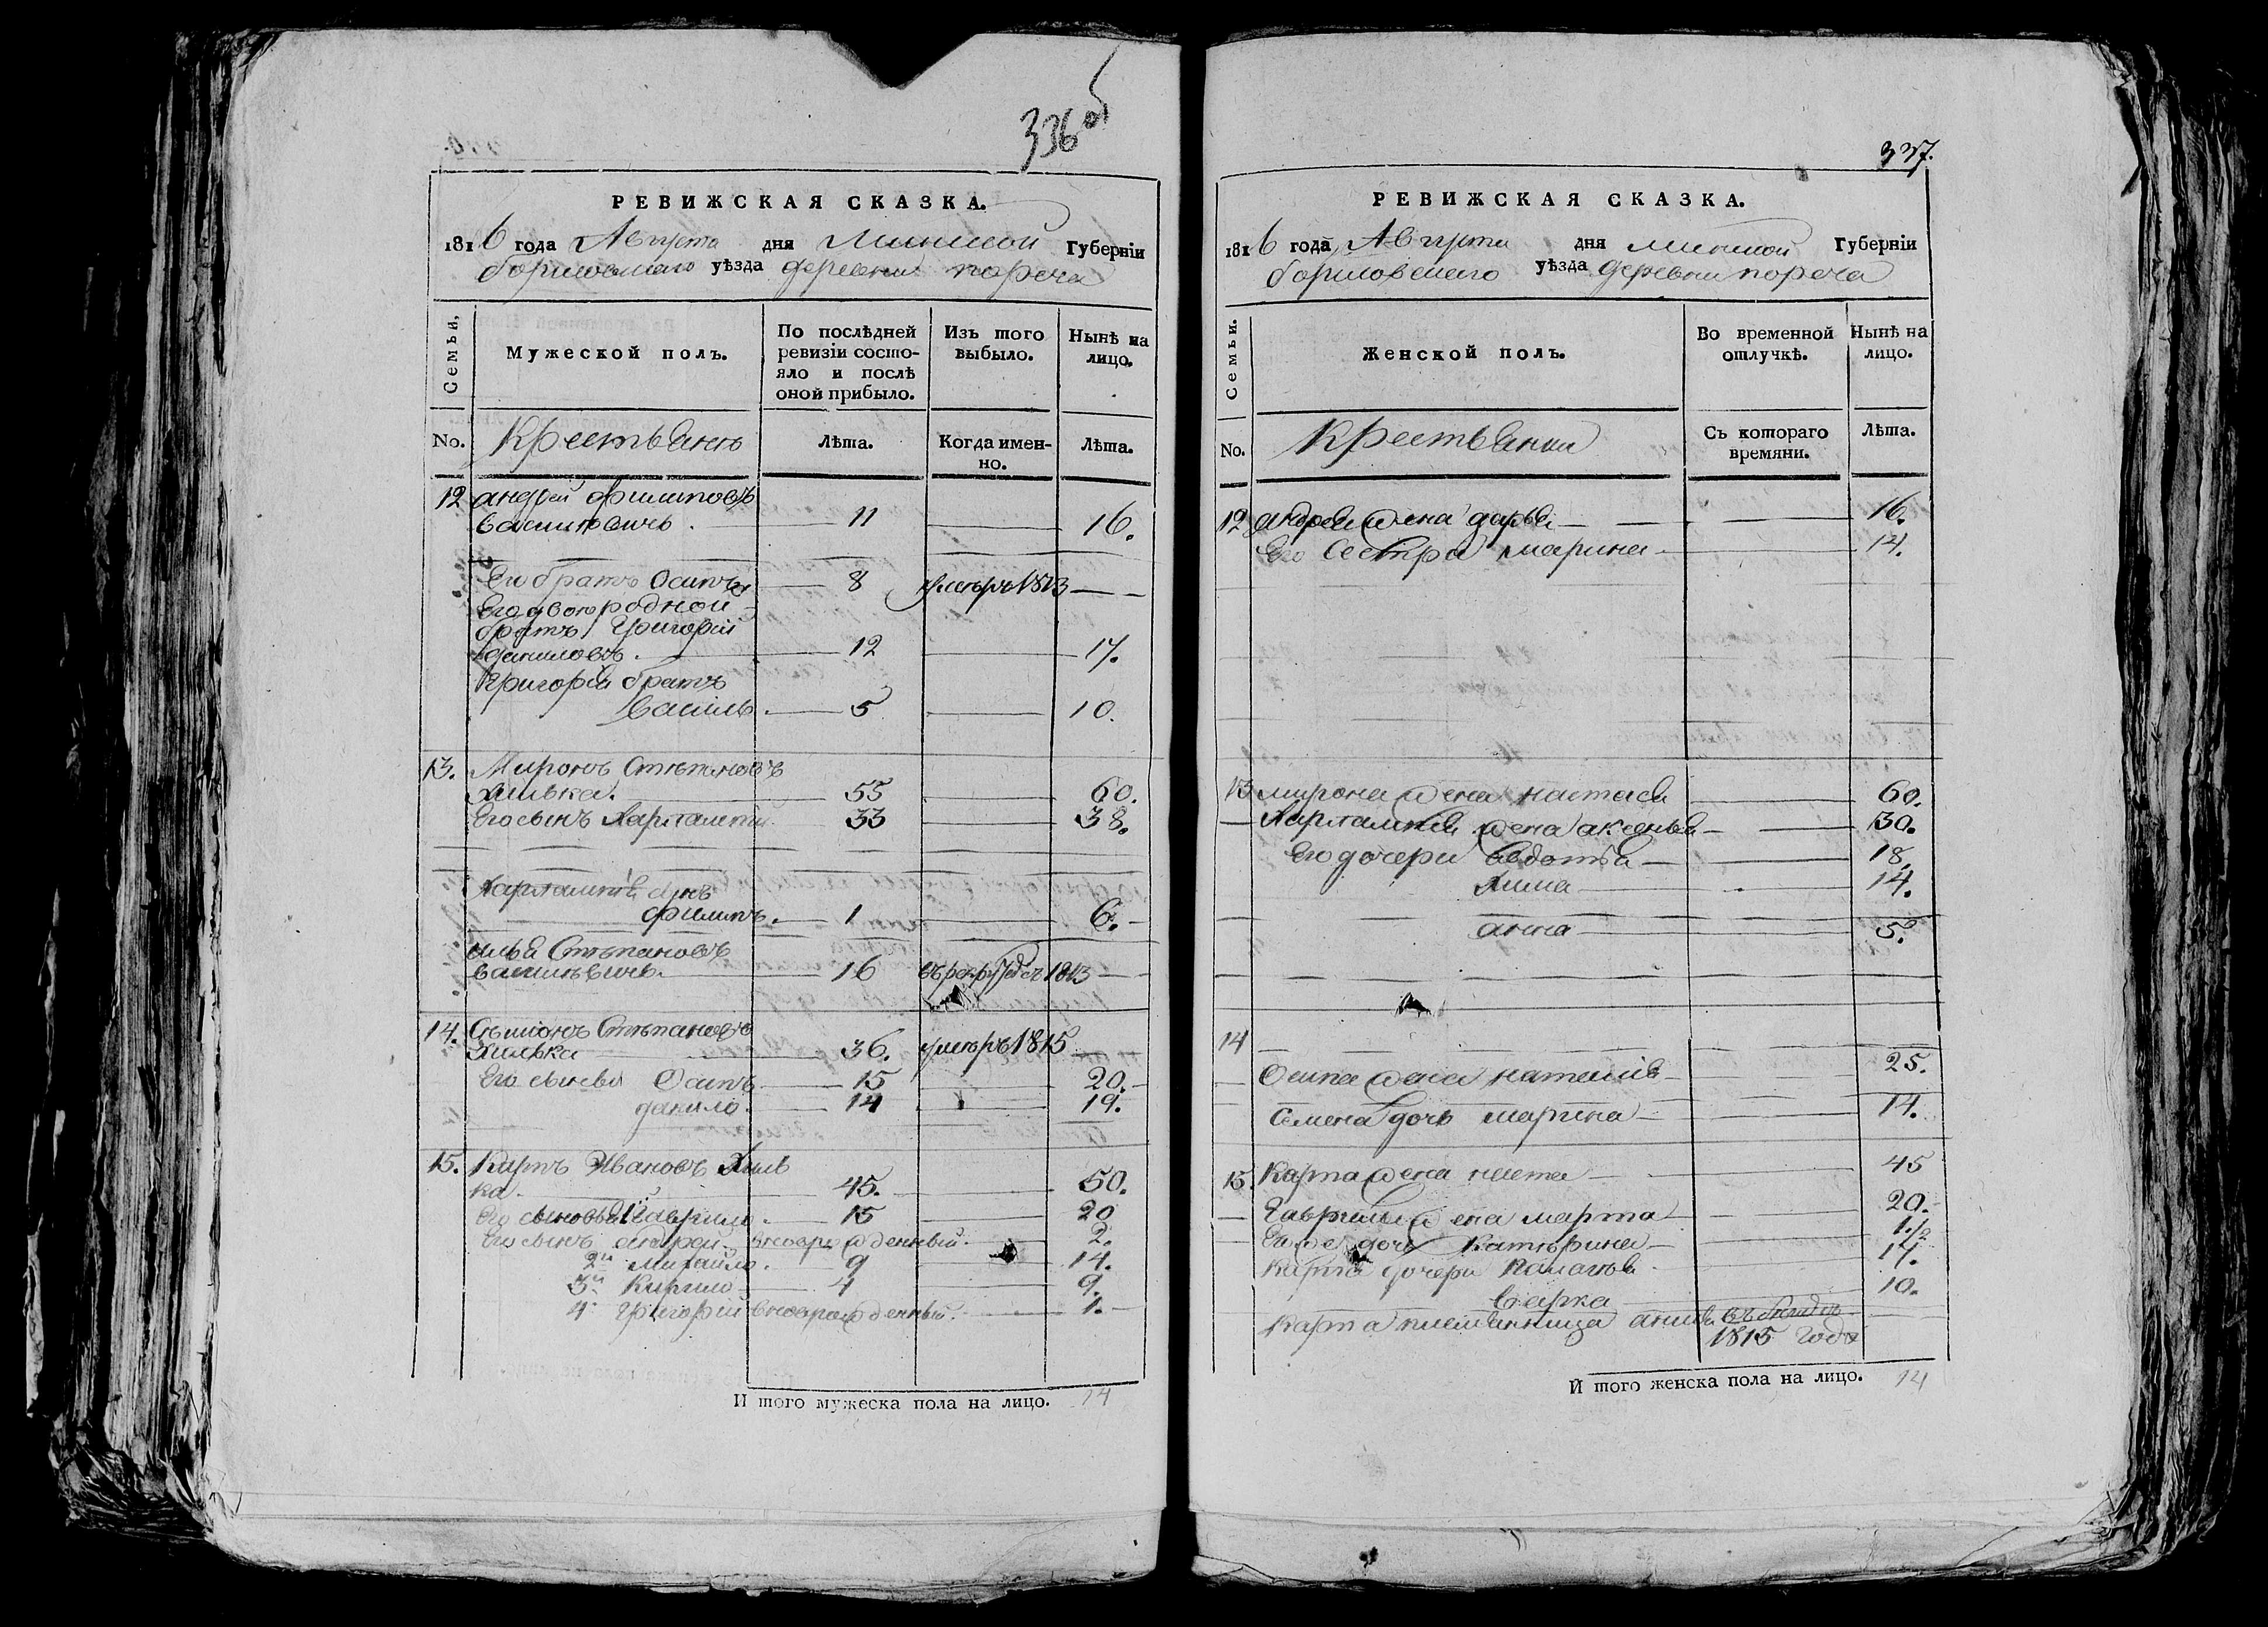 336 об
РЕВИЖСКАЯ СКАЗКА.
1816 года Августа дня Минской Губернïи
борисовскаго уѣзда деревни пореча
Семьи,
Мужеской полъ.
По послѣдней ревизïи состояло и послѣ оной прибыло.
Изъ того выбыло.
Нынѣ на лицо.
No.
Крестьянъ
Лѣта.
Когда именно.
Лѣта.
12 андрей филиповъ
василевичъ. 11 16.
Его братъ Осипъ 8 умеръ 1813
Его двоюродной
братъ Григорïй
даниловъ. 12 17.
Григорïя братъ
василь. 5 10.
13. Миронъ Степановъ
хилька. 55 60.
Его сынъ Харлампïй 33 38.
Харлампïя сынъ
филипъ. 1 6.
илья Степановъ
василевичъ. 16 въ рекруты 1813
14. Съмïонъ Степановъ
Хилька 36. умеръ 1815
Его сыновья Осипъ 15 20.
данило. 14 19.
15. Карпъ Ивановъ Хиль
ка. 45. 50.
Его сыновья 1й Гаврило. 15 20
Его сынъ андрей вноворожденный. 2.
2й Михайло. 9 14.
3й Кирило 4 9.
4й Григорïй вноворожденный. 1.
И того мужеска пола на лицо. 14
337.
РЕВИЖСКАЯ СКАЗКА.
1816 года Августа дня минской Губернïи
борисовскаго уѣзда деревни пореча
Семьи.
Женской полъ.
Во временной отлучкѣ.
Нынѣ на лицо.
No.
Крестьянки
Съ котораго времяни.
Лѣта.
12 андрея жена дарья 16.
Его Сестра марина 14.
13 мирона жена настася 60.
Харлампïя жена аксенья 30.
Его дочери авдотья 18.
Хима 14.
анна 5.
14
Осипа жена наталïя 25.
Семена дочь марина 14.
15. Карпа жена 45
Гаврилы жена марта 20.
Его же дочь Катерина 1.1/2
Карпа дочери Палагея 17.
варка 10.
Карпа племянница
1815 года
И того женска пола на лицо. 14